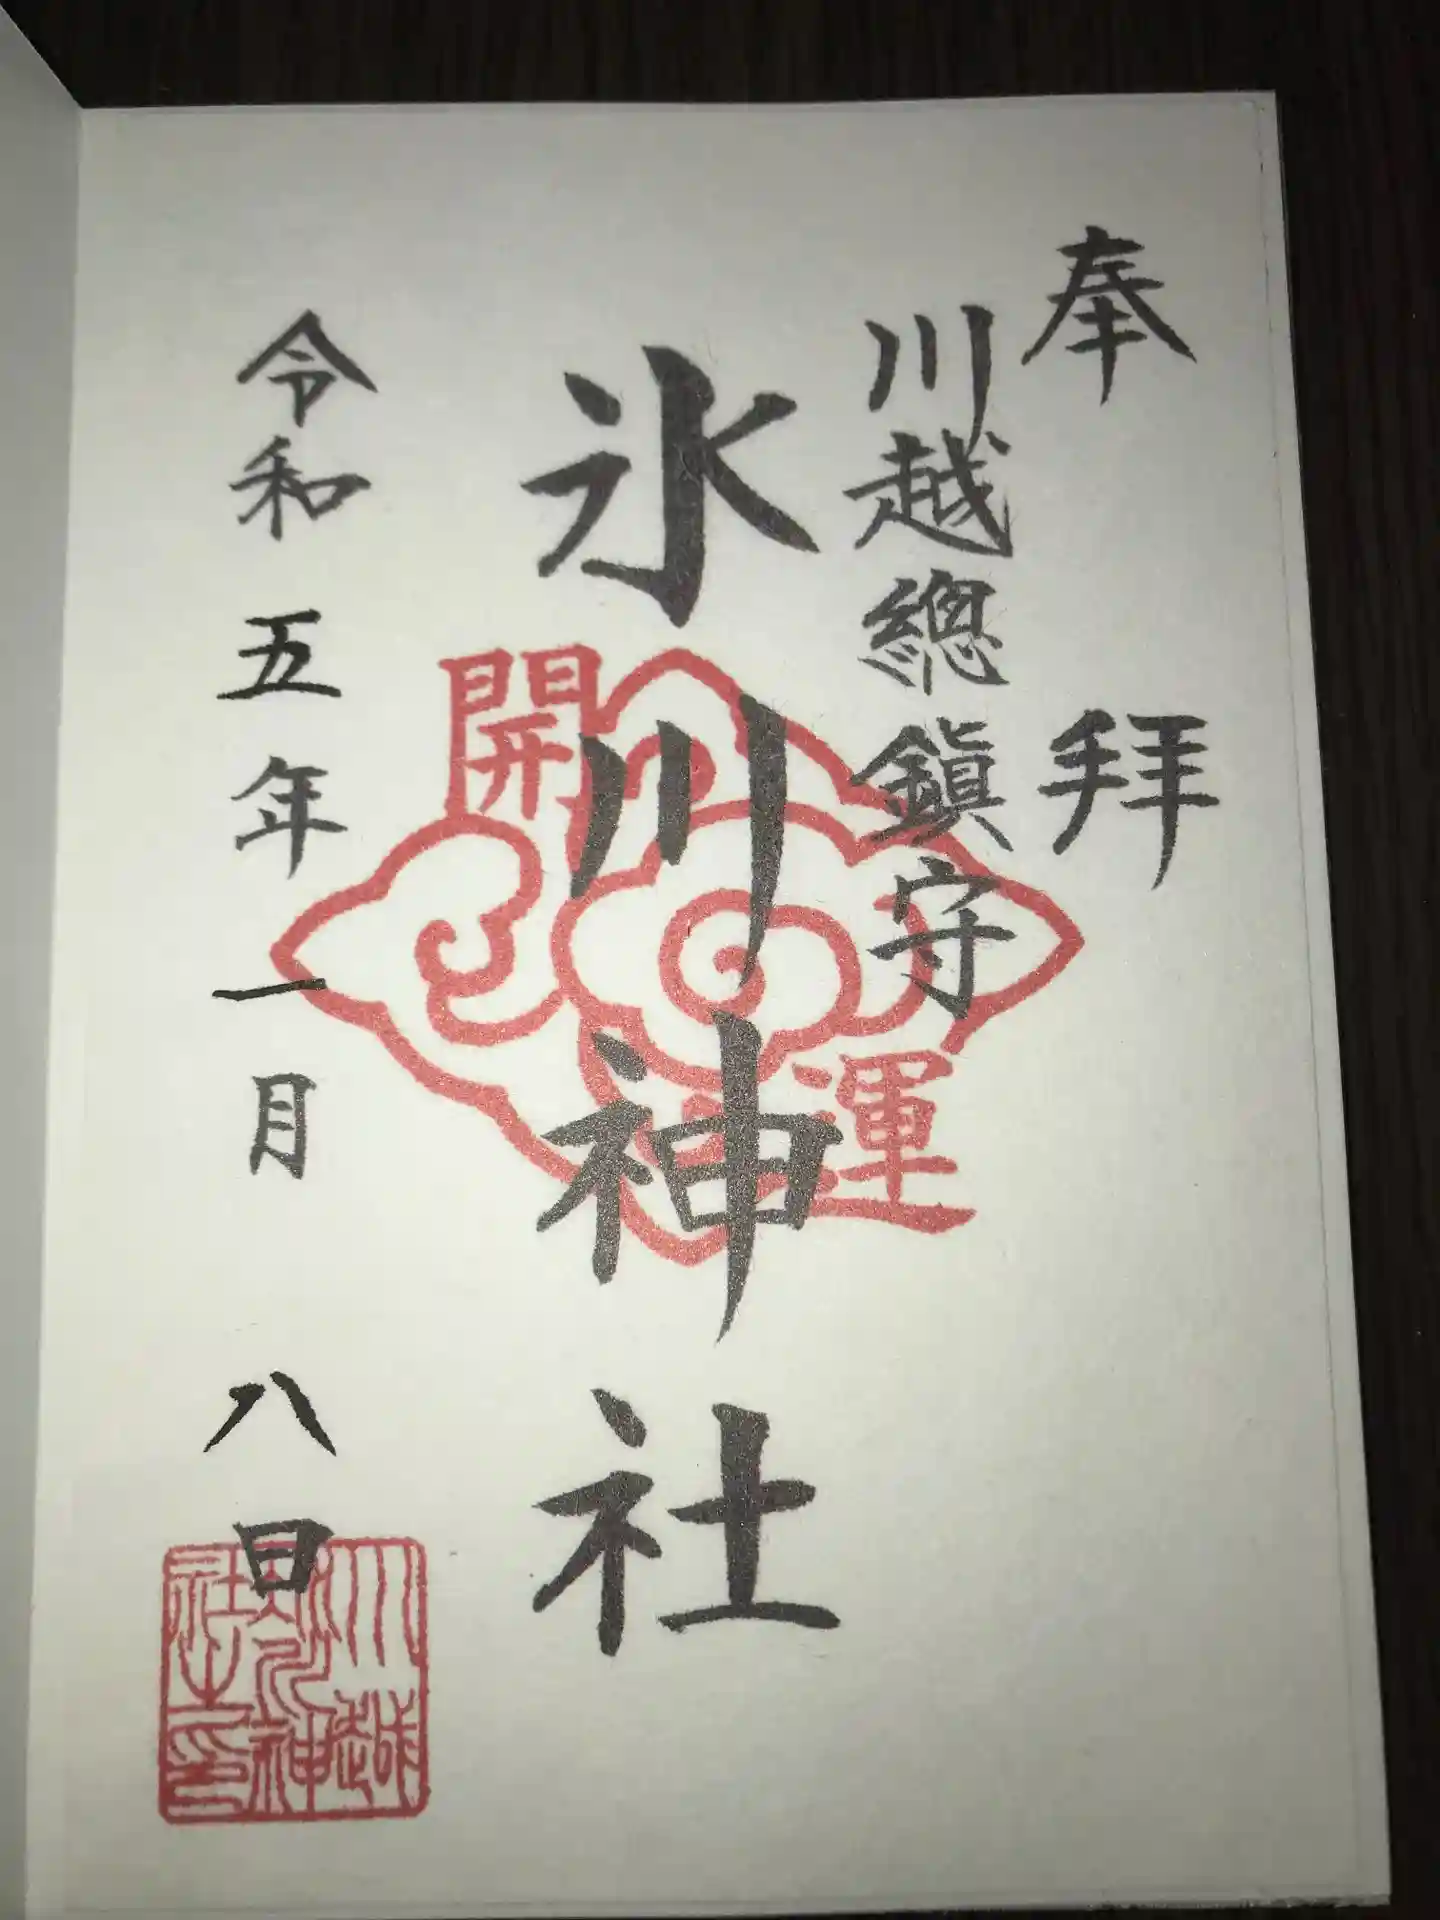 奉拜
川越總鎮守
氷川神社
開運
令和五年一月八日
川越氷川神社之印